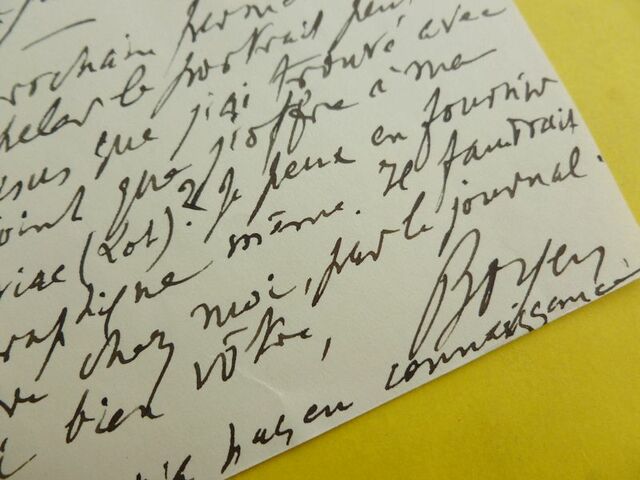 rochain
peler le portrait
sus que j'ai trouvé avec
oint que j'offre à ma
riac (Lot). Je peux en fournir
même. Il faudrait
chez moi, par le journal.
bien vôtre, Boyer
pas eu connaissance